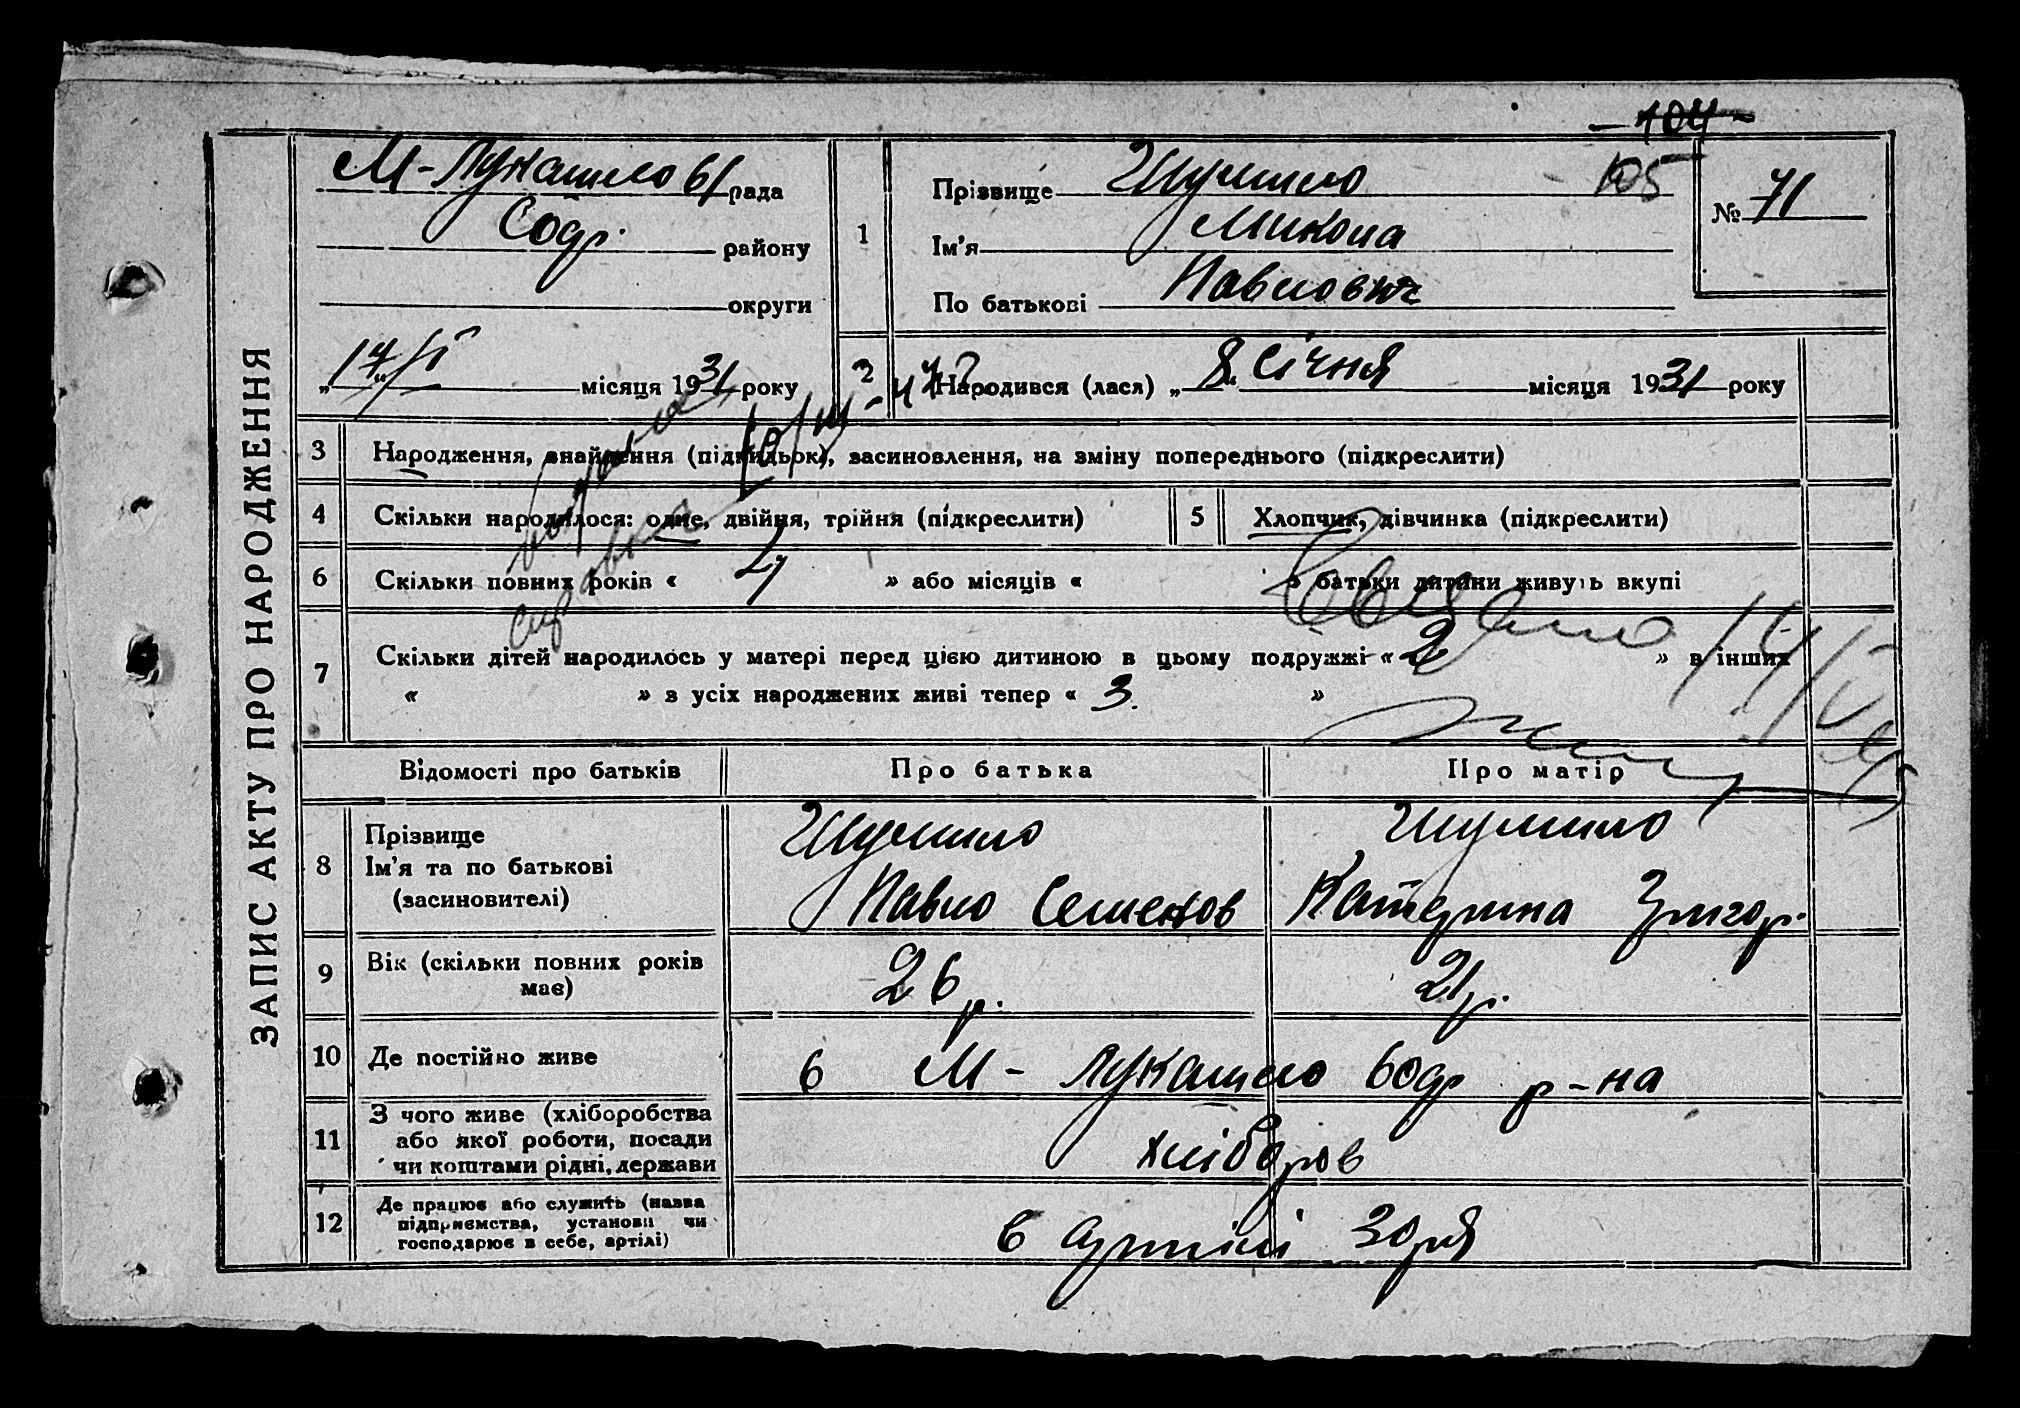 104
105
ЗАПИС АКТУ ПРО НАРОДЖЕННЯ
М-Лукашево рада
району
округи
" 14/ІІ місяця 1931 року
1
Прізвище Шумило
Ім'я Микола
По батькові Павлович
№ 71
2 Народився (лася) „ 8 " січня місяця 1931 року
3 Народження, знайдення (підкидьок), засиновлення, на зміну попереднього (підкреслити)
4 Скільки народилося: одне, двійня, трійня (підкреслити)
5 Хлопчик, дівчинка (підкреслити)
6 Скільки повних років « 4 » або місяців « » батьки дитини живуть вкупі
7 Скільки дітей народилось у матері перед цією дитиною в цьому подружжі « 2 » в інших
« » з усіх народжених живі тепер « 3. »
Відомості про батьків Про батька Про матір
8 Прізвище
Ім'я та по батькові
(засиновителі)
Шумило
Павло Семенов
Шумило
Катерина Григор.
9 Вік (скільки повних років
має)
26 р. 21 р.
10 Де постійно живе
в М-Лукашево р-на
11 З чого живе (хліборобства
або якої роботи, посади
чи коштами рідні, держави
хлібороб
12 Де працює або служить (назва
підприємства, установи чи
господарює в себе, артілі)
в артілі Зоря